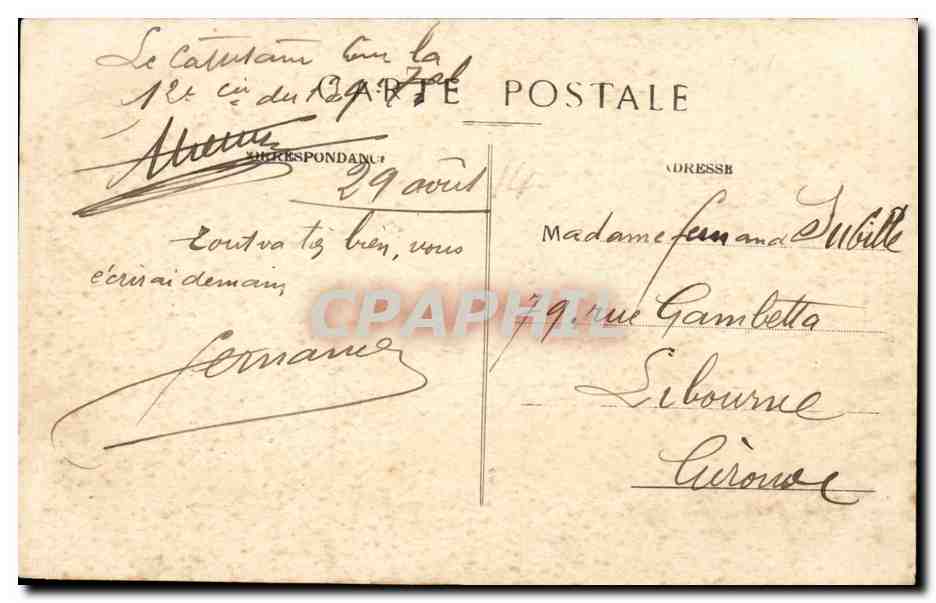 Le Capitaine Com la
12e Cie du
CARTE POSTALE
CORRESPONDANCE
ADRESSE
29 août 14
tout va très bien, vous
écrirai demain
Fernand
Madame Fernand Subille
79, rue Gambetta
Libourne
Gironde
CPAPHIL